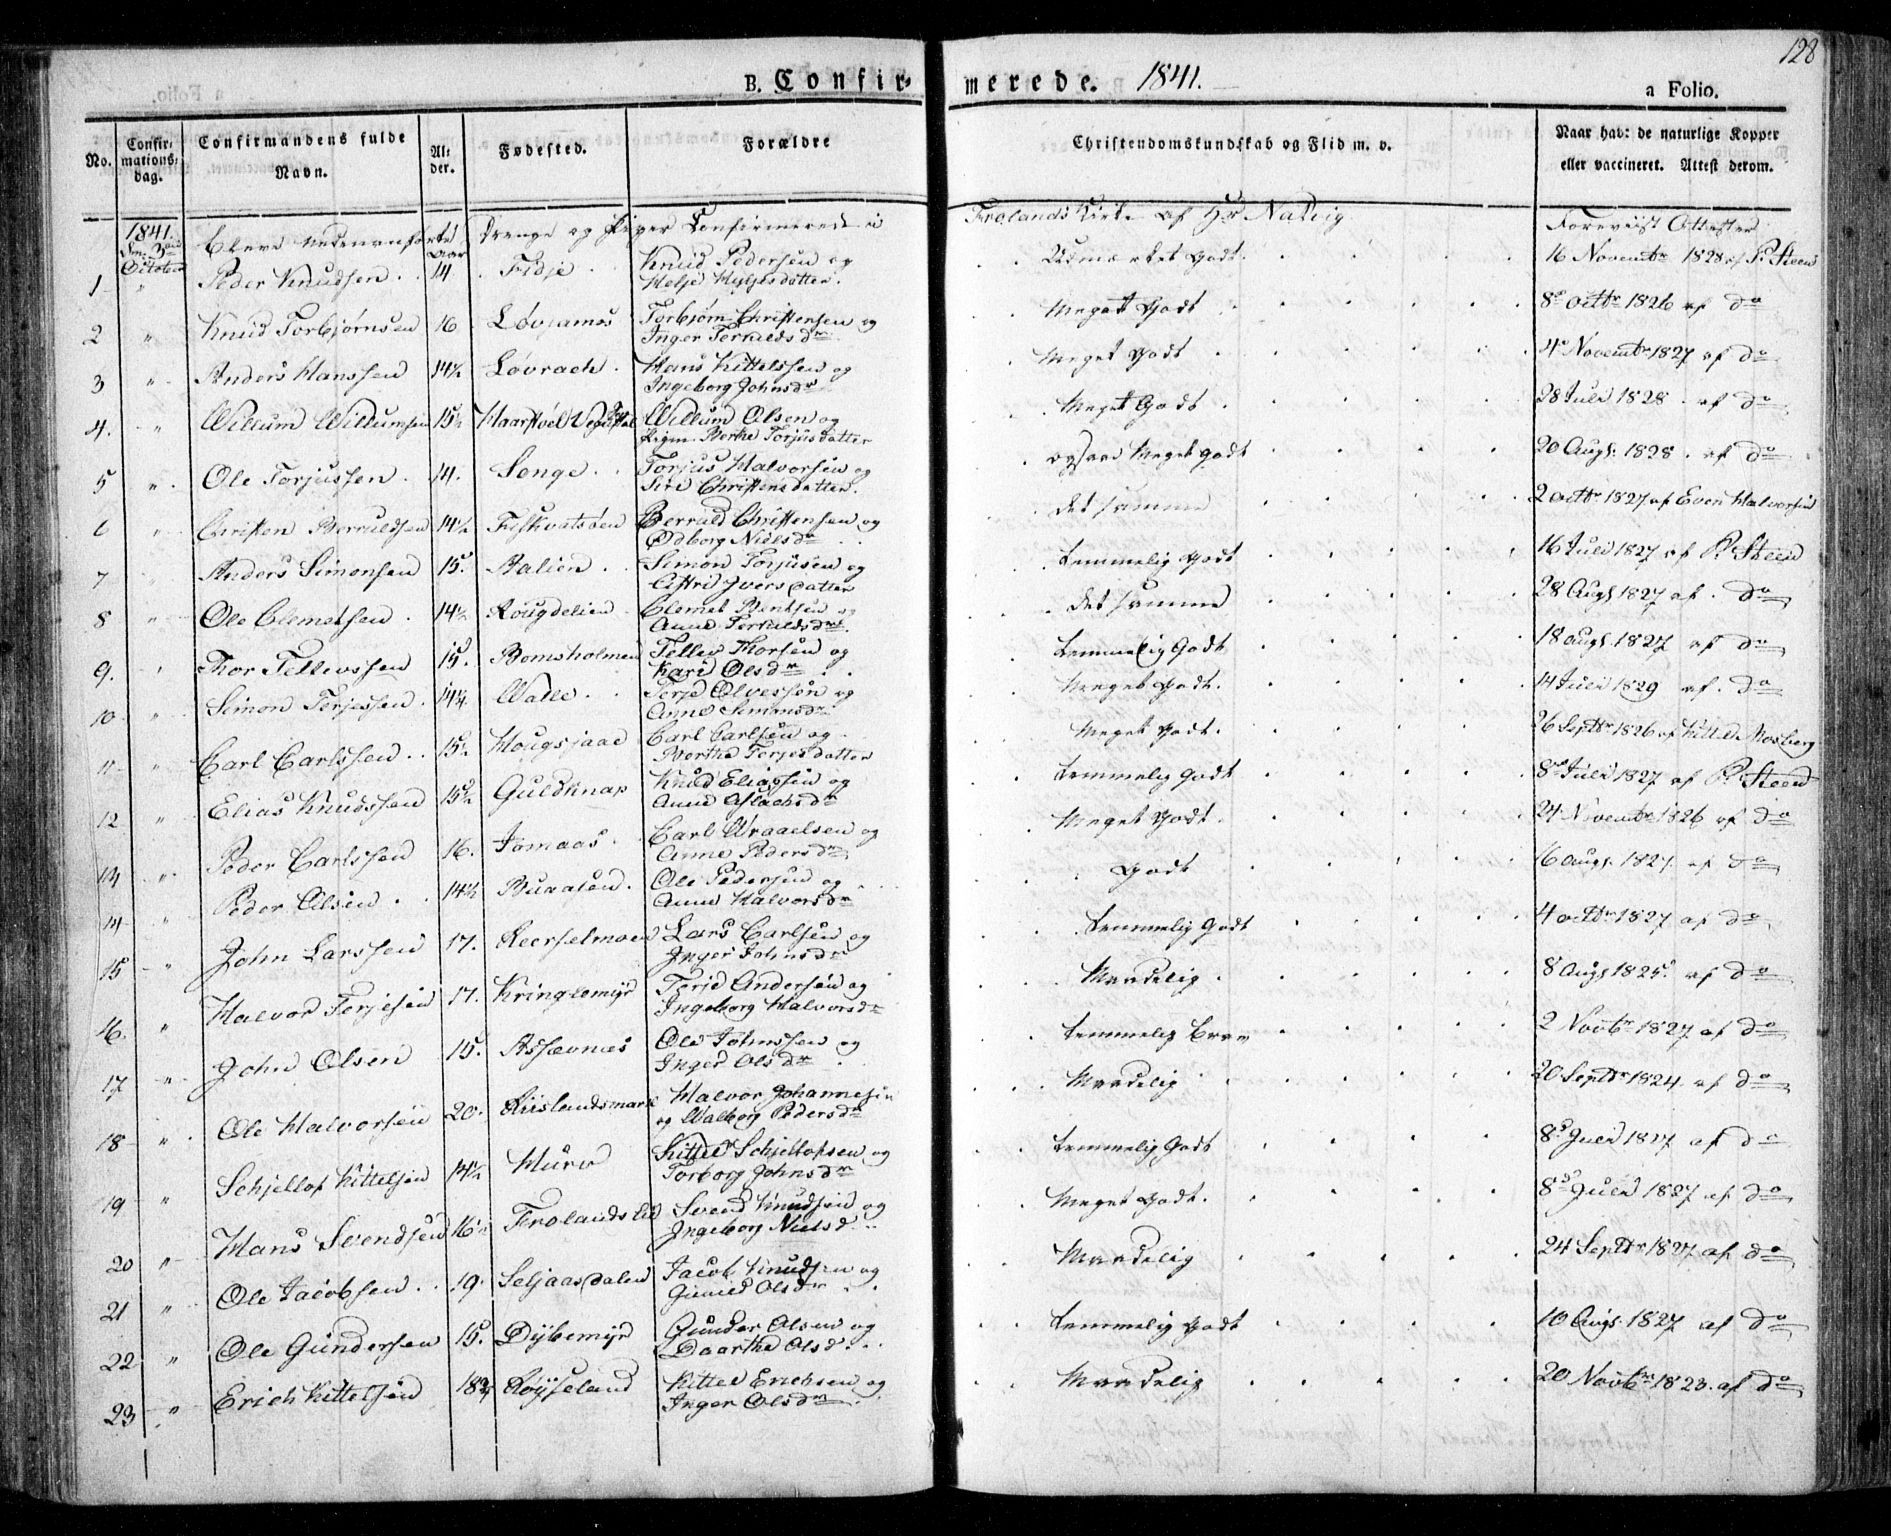 128
B. Confirmerede. 1841.
a Folio.
No. Confirmations: dag. Confirmandens fulde Navn. Alder. Fødested. Forældre Christendomskundskab og Flid m. v. Naar hav: de naturlige Kopper eller vaccineret. Attest derom.
1841. 3die October
Drenge og Piger Confirmerede i Frolands Kirke af Hr Natvig. Foreviist Attester
1 " Peder Knudsen 14 Fidje Knud Pedersen og Udmærket Godt. 16 Novembr 1828 af P. Steen
2 " Knud Torbjørnsen 16 Løvjomås Torbjørn Christensen og Inger Terkeldsdr Meget Godt 8de octbr 1826 af do
3 " Anders Hanssen 14½ Løvrach Hans Kittelsen og Ingeborg Johnsdr Meget Godt 4de Novembr 1827 af do
4. " Willum Willumsen 15½ Willum Olsen og Berthe Torjusdatter Meget Godt 28 Juli 1828 af do
5 " Ole Torjussen 14. Songe Torjus Halvorsen og Siri Christensdatter. ogsaa Meget godt 20 Augs: 1828 af do
6 " Christen Berruldsen 14½ Fiskvatsøen Berruld Christensen og Odborg Nielsdr det samme 2 octbr 1827 af Even Halvorsen
7 " Anders Simonsen 15. Balien Simon Torjusen og Iversdatter temmelig Godt 16 Juli 1827 af P. Steen
8 " Ole Clemetsen 14½ Rougdelien Clemet Bentsen og Anne Terkeldsdr det samme 28 Augs 1827 af do
9. " Thor Tellevssen 15. Bomsholmen Tellev Thorsen og Kari Olsdr temmelig Godt 18 augs. 1827 af do
10 " Simon Terjessen 14¼ Walle Terje Olvessøn og Anne Simonsdr Meget Godt. 14 Juli 1829 af do
11 " Carl Carlssen 15½ Hougsjaae Carl Carlsen og Berthe Terjesdatter Meget Godt. 26 Septbr 1826 af Kittel Mosberg
12 " Elias Knudssen 15½ Guldknap Knud Eliassen og Anne Aslachsdr temmelig Godt 8de Juli 1827 af P. Steen
13 " Peder Carlssen 16. Jomaas Carl Wraalsen og Anne Pedersdr Meget Godt. 24 Novembr 1826 af do
14 " Peder Olsen 14½ Buraasen Ole Pedersen og Anne Halvorsdr Godt 16 augs. 1827 af do
15 " John Larssen 17. Reerselmoen Lars Carlsen og Inger Johnsdr temmelig Godt 4 octbr 1827 af do
16. " Halvor Terjesen 17. Kringlemyr Terje Andersen og Ingeborg Halvorsdr Maadelig 8 Augs 1825 af do
17 " John Olsen 15. Assævnæs Ole Johnssen og Inger Olsdr temmelig Brav 2 Novbr 1827 af do
18 " Ole Halvorsen 20. Riislandsmark Halvor Johannesen og Walborg Pedersdr Maadelig 20 Septbr 1824 af do
19 " Schjellof Kittelsen 14½ Murer Kittel Schjellofsen og Torborg Johnsdr temmelig Godt 8de Juli 1827 af do
20 " Hans Svendsen 16½ Frolandslid Svend Knudsen og Ingeborg Nielsd. Meget Godt. 8de Juli 1827 af do
21 " Ole Jacobsen 19. Seljaasdalen Jacob Knudsen og Gunild Olsdr Maadelig 24 Septbr 1827 af do
22 " Ole Gundersen 15. Dybemyr Gunder Olsen og Daarthe Olsd. temmelig Godt 10 Augs. 1827 af do
23 " Erich Kittelsen 18¾ Røyseland Kittel Erichsen og Inger Olsdr Maadelig 20 Novbr 1823 af do